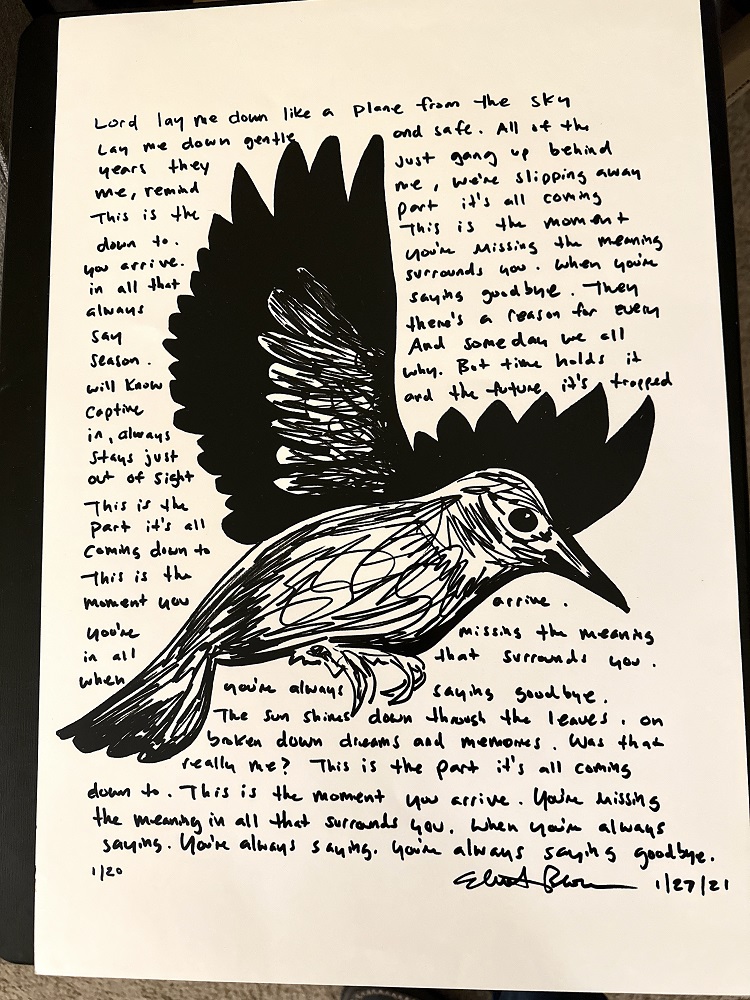 Lord lay me down like a plane from the sky
Lay me down gentle and safe. All of the
years they just gang up behind
me, remind me, we're slipping away
This is the part it's all coming
down to. This is the moment
you arrive. You're missing the meaning
in all that surrounds you. When you're
always saying goodbye. They
say there's a reason for every
season. And someday we all
will know why. But time holds it
captive and the future, it's trapped
in, always
stays just
out of sight
This is the
part it's all
coming down to
This is the
moment you arrive.
You're missing the meaning
in all that surrounds you.
when you're always saying goodbye.
The sun shines down through the leaves. on
broken down dreams and memories. Was that
really me? This is the part it's all coming
down to. This is the moment you arrive. You're missing
the meaning in all that surrounds you. When you're always
saying. You're always saying. You're always saying goodbye.
1/20 1/27/21